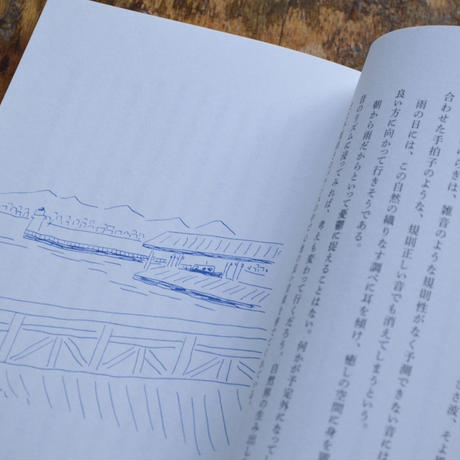 さざ波、そよ
らぎは、雑音のような規則性がなく予測できない音には
合わせた手拍子のような、規則正しい音でも消えてしまうという。
雨の日には、この自然の織りなす調べに耳を傾け、癒しの空間に身を
良い方に向かって行きそうである。
朝から雨だからといって憂鬱に捉えることはない。何かが予定外になって
音のリズムに浸ってみれば、考えも変わって行くだろう。自然界の生み出し